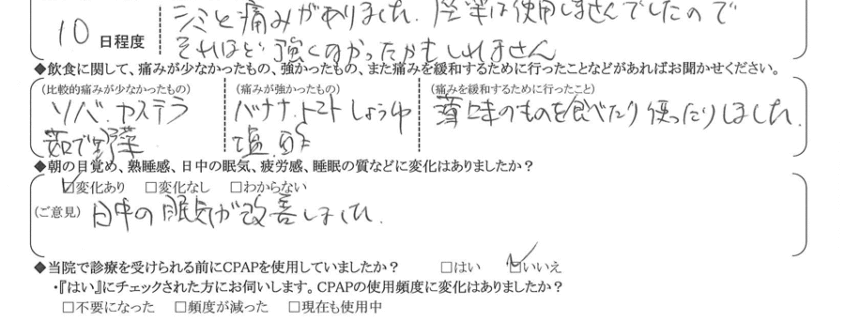 シミと痛みがありました. 座薬は使用しませんでしたので
10 日程度 それほど強くなかったかもしれません
◆飲食に関して、痛みが少なかったもの、強かったもの、また痛みを緩和するために行ったことなどがあればお聞かせください。
(比較的痛みが少なかったもの) (痛みが強かったもの) (痛みを緩和するために行ったこと)
ソバ.カステラ バナナ.トマト しょうゆ 薄味のものを食べたり使ったりしました.
茹で野菜 塩.酢
◆朝の目覚め、熟睡感、日中の眠気、疲労感、睡眠の質などに変化はありましたか？
☑変化あり □変化なし □わからない
(ご意見) 日中の眠気が改善しました.
◆当院で診療を受けられる前にCPAPを使用していましたか？ □はい ☑いいえ
・『はい』にチェックされた方にお伺いします。CPAPの使用頻度に変化はありましたか？
□不要になった □頻度が減った □現在も使用中